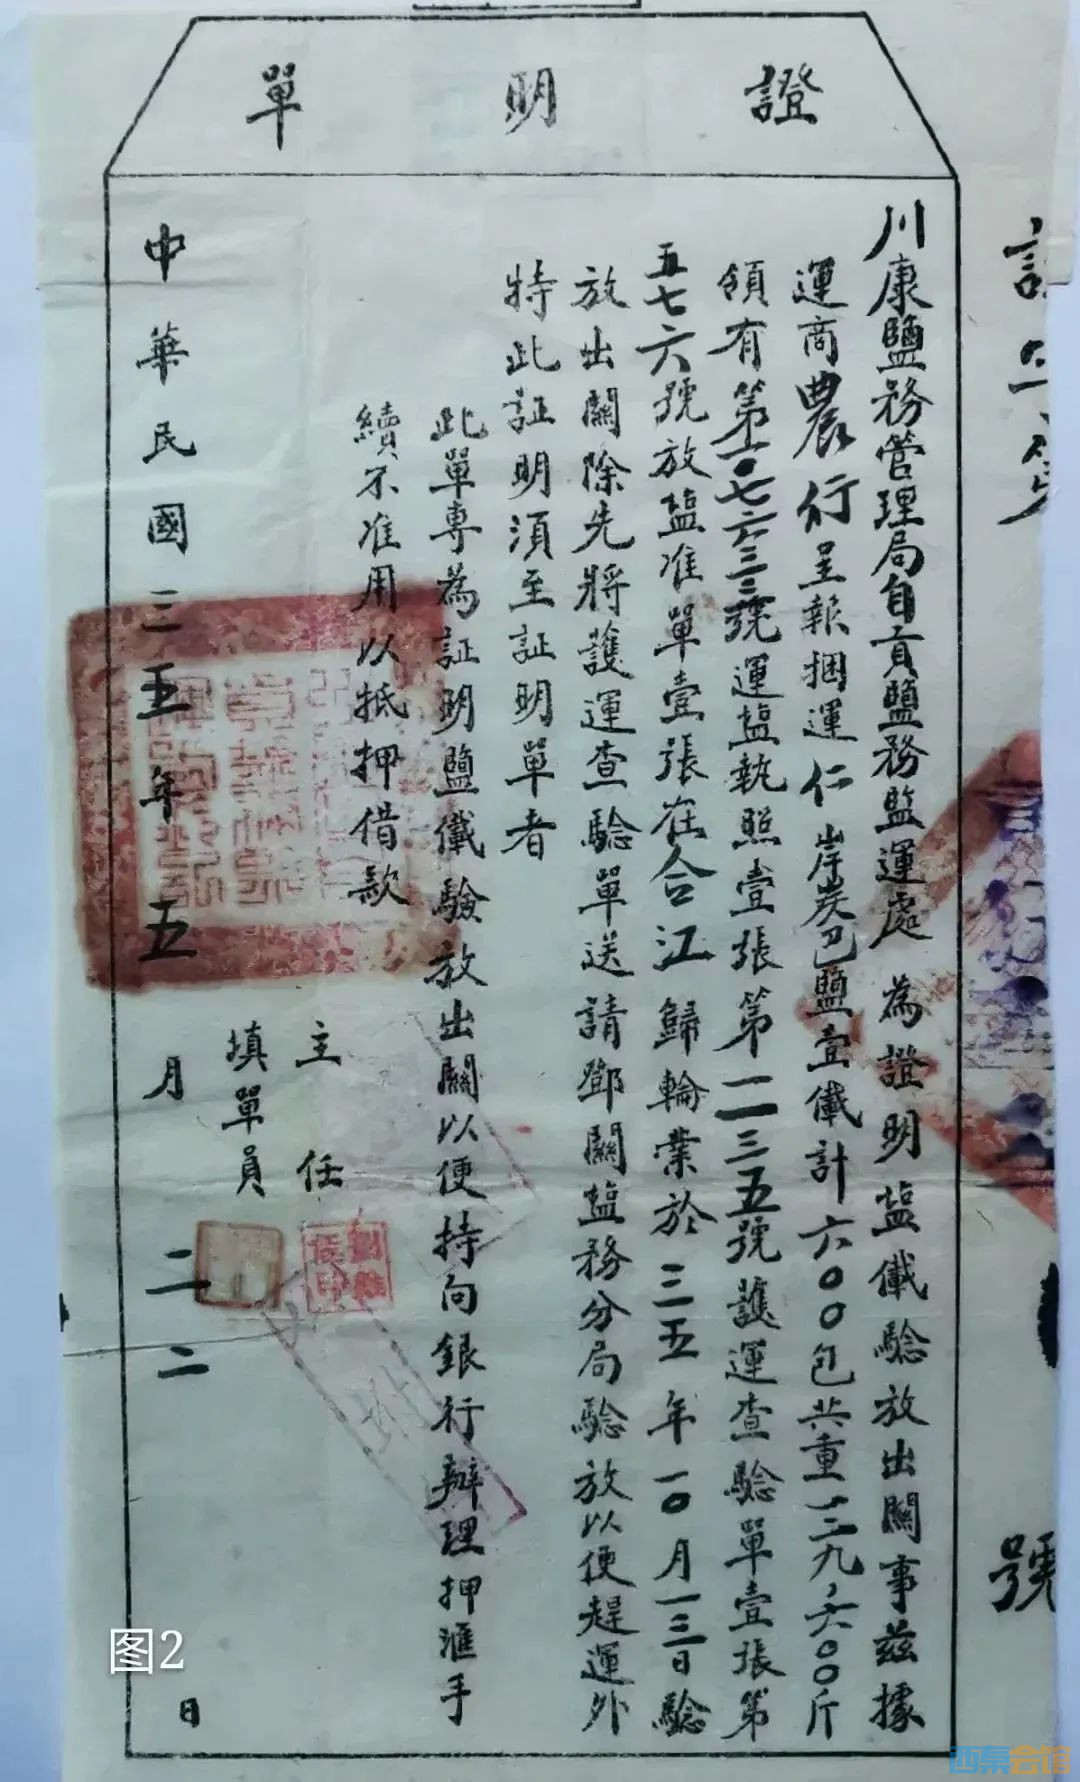 證明單
川康鹽務管理局自貢鹽務監運處為證明盐儎驗放出關事茲據
運商農行呈報捆運仁岸炭巴鹽壹儎計六〇〇包共重一三九、六〇〇斤
領有第一〇七六三三號運盐執照壹張第一一三五號護運查驗單壹張第
五七六號放盐准單壹張在合江歸輪業於三五年一〇月一三日驗
放出關除先將護運查驗單送請鄧關盐務分局驗放以便趕運外
特此証明須至証明單者
此單專為証明鹽儎驗放出關以便持向銀行辦理押滙手
續不准用以抵押借款
主任
填單員
中華民國三五年五月二二日
號
图2
西秦会馆